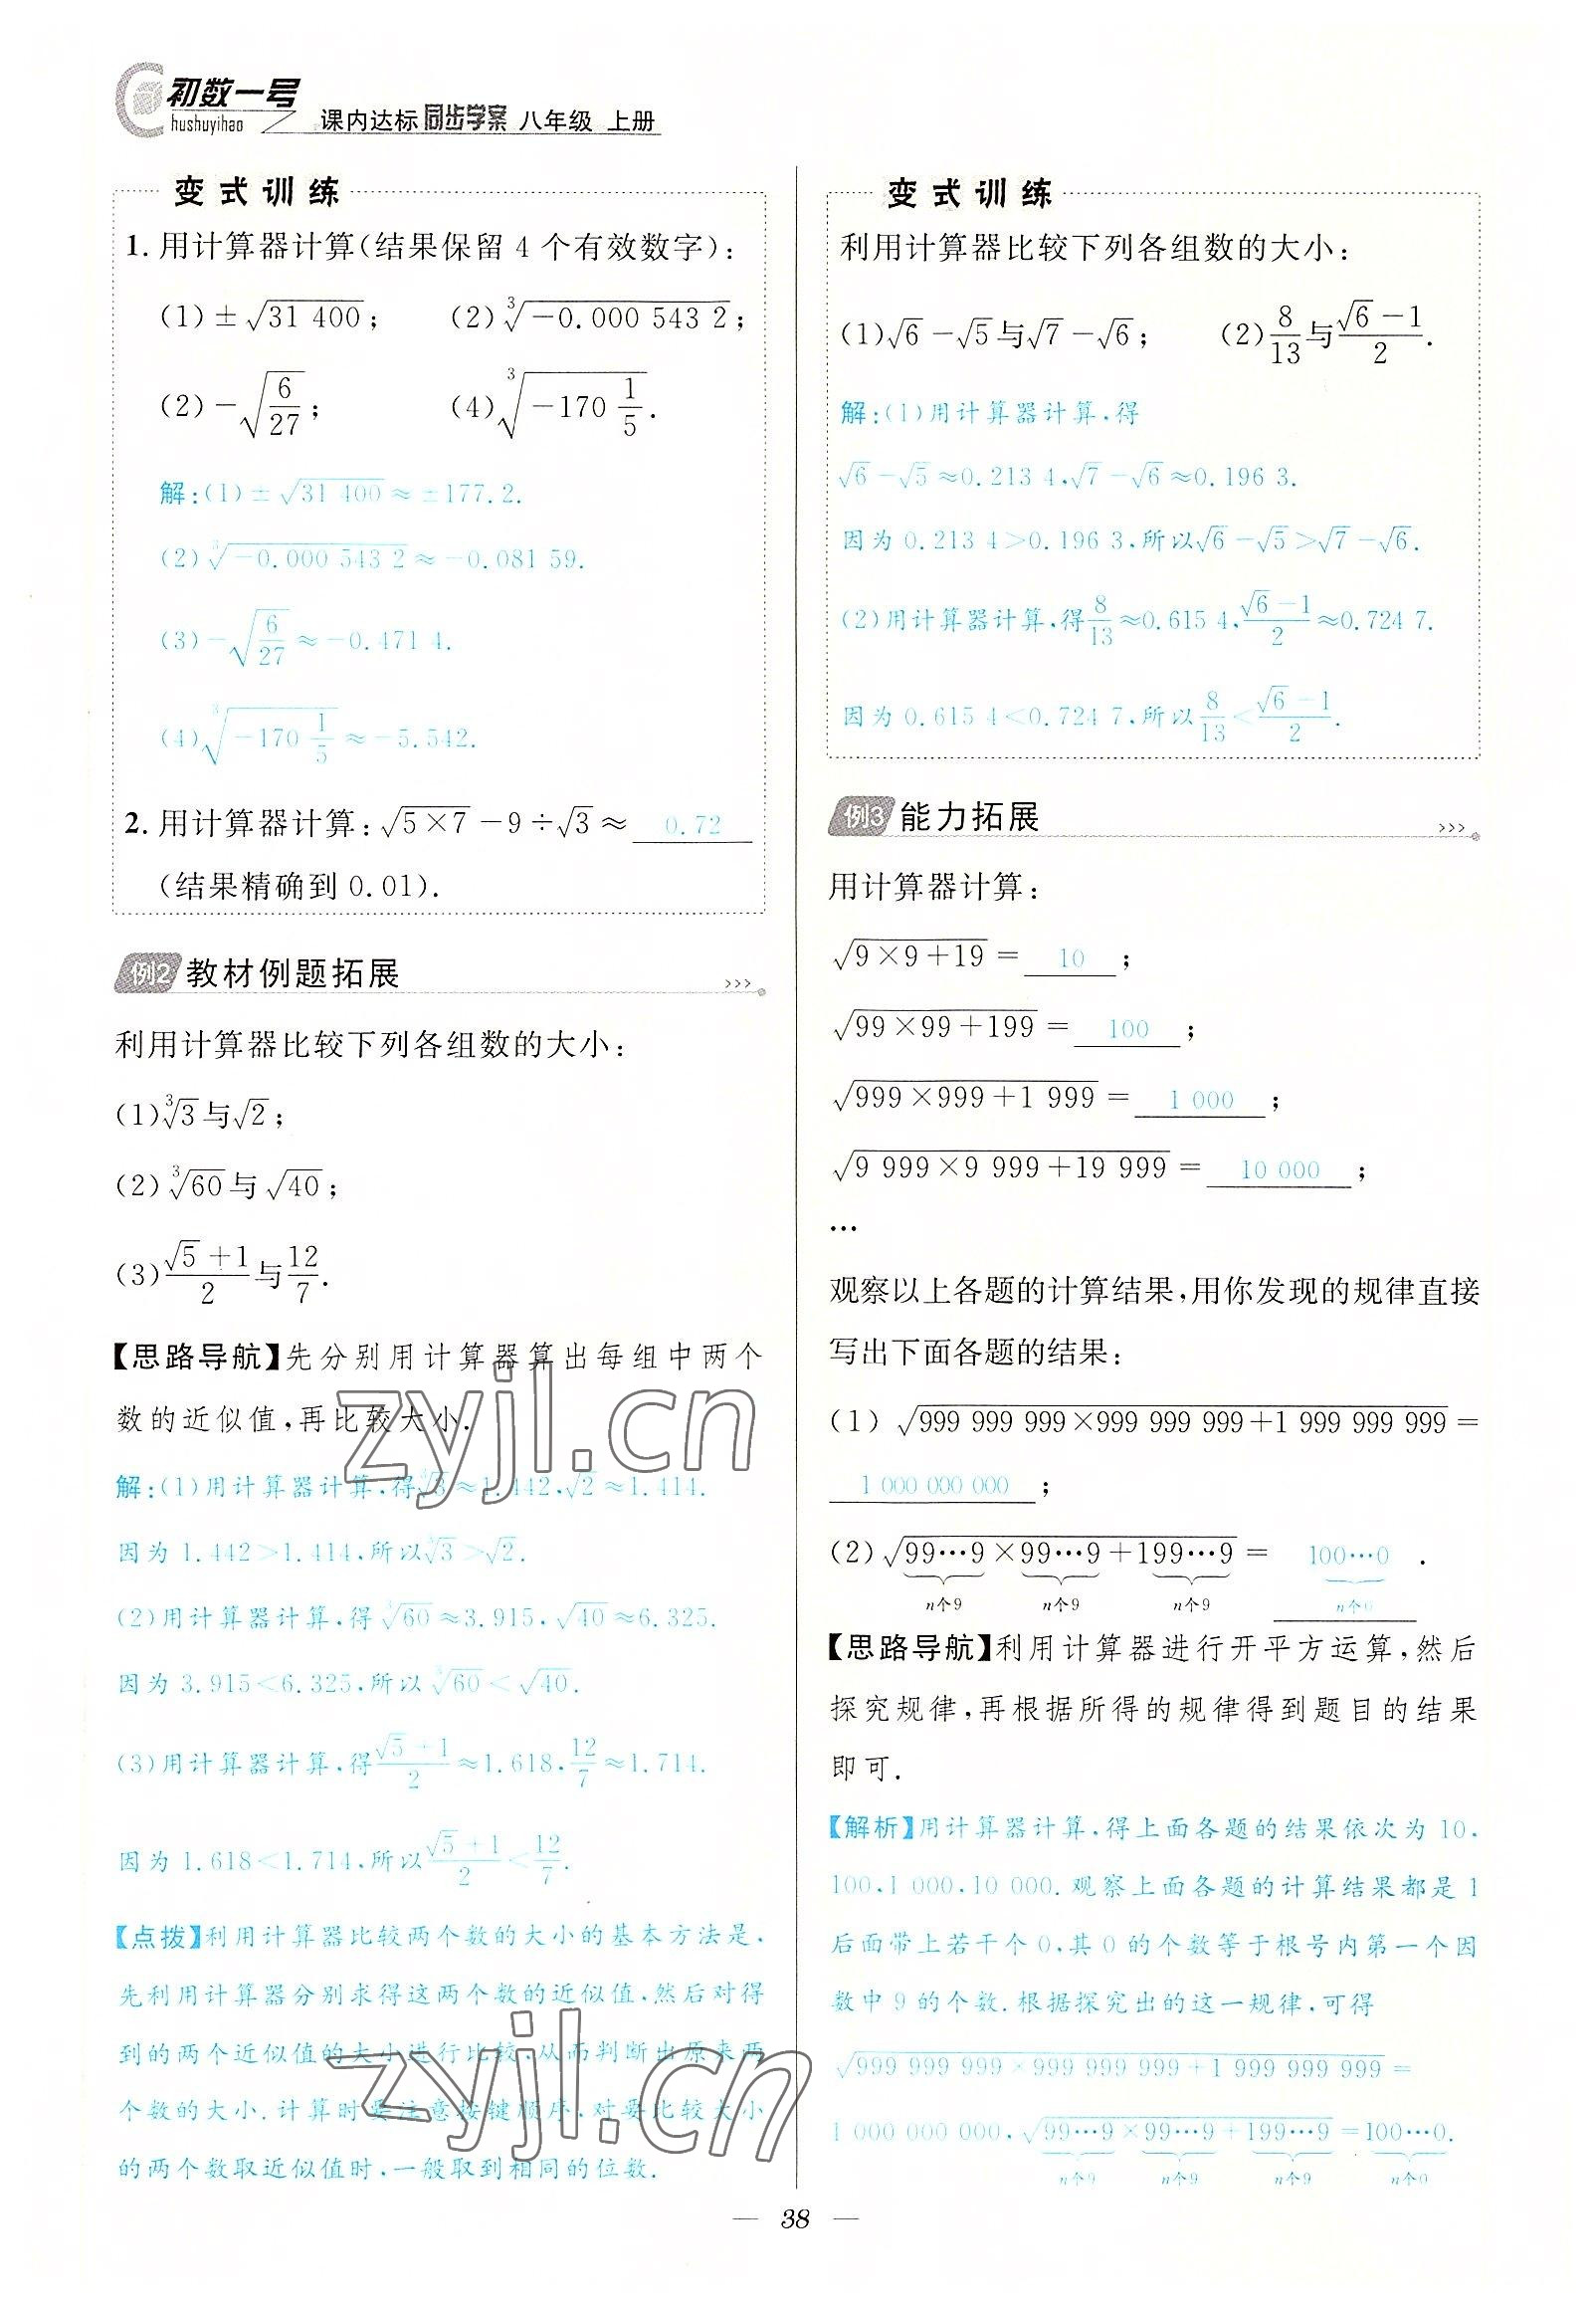 初数一号
hushuyihao
课内达标 同步学案 八年级 上册
变式训练
1. 用计算器计算(结果保留 4 个有效数字):
(1) ±√31 400; (2) ∛-0.000 543 2;
(2) -√(6/27); (4) ∛(-170 1/5).
解:(1) ±√31 400 ≈ ±177.2.
(2) ∛-0.000 543 2 ≈ -0.081 59.
(3) -√(6/27) ≈ -0.471 4.
(4) ∛(-170 1/5) ≈ -5.542.
2. 用计算器计算: √(5×7) -9÷√3 ≈ 0.72
(结果精确到 0.01).
例2 教材例题拓展 >>>
利用计算器比较下列各组数的大小:
(1) ∛3与√2;
(2) ∛60与√40;
(3) (√5+1)/2与12/7.
【思路导航】先分别用计算器算出每组中两个
数的近似值,再比较大小.
解:(1)用计算器计算,得∛3≈1.442,√2≈1.414.
因为 1.442>1.414,所以∛3>√2.
(2)用计算器计算,得∛60≈3.915,√40≈6.325.
因为 3.915<6.325,所以∛60<√40.
(3)用计算器计算,得(√5+1)/2≈1.618,12/7≈1.714.
因为 1.618<1.714,所以(√5+1)/2<12/7.
【点拨】利用计算器比较两个数的大小的基本方法是,
先利用计算器分别求得这两个数的近似值,然后对得
到的两个近似值的大小进行比较,从而判断出原来两
个数的大小.计算时要注意按键顺序,对要比较大小
的两个数取近似值时,一般取到相同的位数.
变式训练
利用计算器比较下列各组数的大小:
(1)√6-√5与√7-√6; (2)8/13与(√6-1)/2.
解:(1)用计算器计算,得
√6-√5≈0.213 4,√7-√6≈0.196 3.
因为 0.213 4>0.196 3,所以√6-√5>√7-√6.
(2)用计算器计算,得8/13≈0.615 4,(√6-1)/2≈0.724 7.
因为 0.615 4<0.724 7,所以8/13<(√6-1)/2.
例3 能力拓展 >>>
用计算器计算:
√(9×9+19) = 10 ;
√(99×99+199) = 100 ;
√(999×999+1 999) = 1 000 ;
√(9 999×9 999+19 999) = 10 000 ;
…
观察以上各题的计算结果,用你发现的规律直接
写出下面各题的结果:
(1) √(999 999 999×999 999 999+1 999 999 999) =
1 000 000 000 ;
(2) √(99…9×99…9+199…9) = 100…0 .
n个9 n个9 n个9 n个0
【思路导航】利用计算器进行开平方运算,然后
探究规律,再根据所得的规律得到题目的结果
即可.
【解析】用计算器计算,得上面各题的结果依次为 10,
100,1 000,10 000.观察上面各题的计算结果都是 1
后面带上若干个 0,其 0 的个数等于根号内第一个因
数中 9 的个数.根据探究出的这一规律,可得
√(999 999 999×999 999 999+1 999 999 999) =
1 000 000 000, √(99…9×99…9+199…9)=100…0.
n个9 n个9 n个9 n个0
— 38 —
zyjl.cn
zyjl.cn